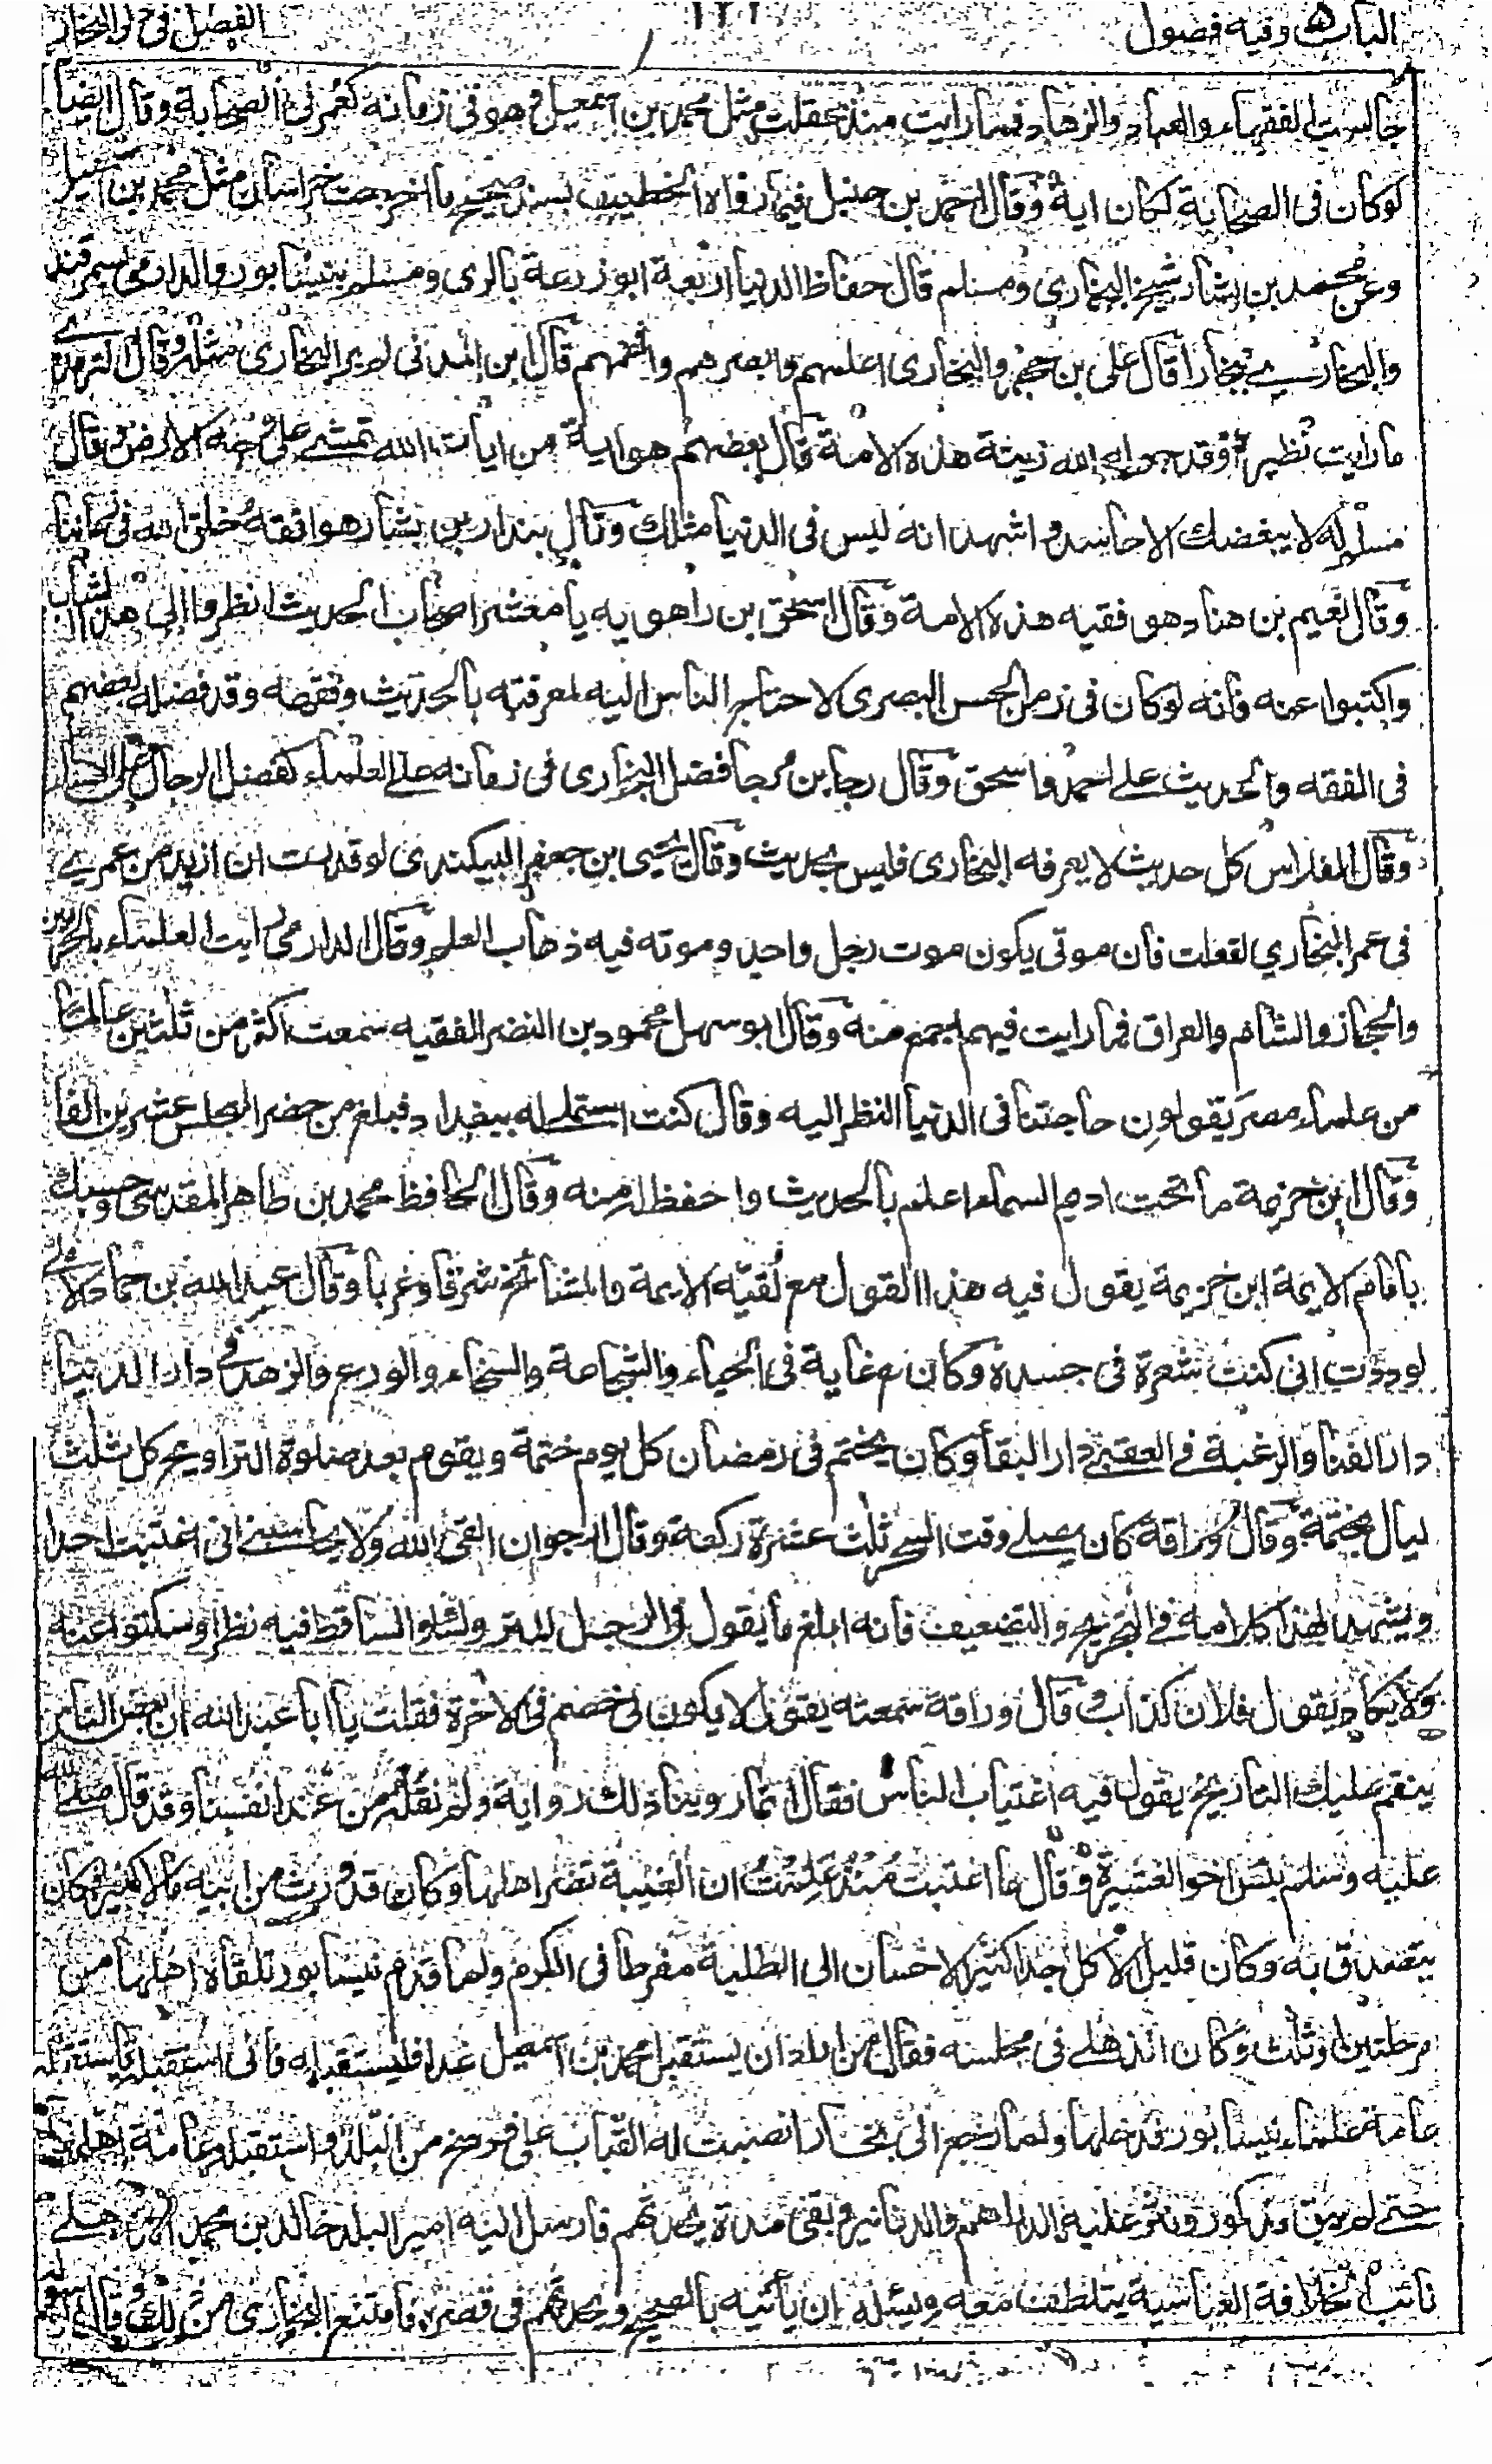 الباب ٥ وفيه فصول
جالست الفقهاء والعباد والزهاد فما رايت منذ عقلت مثل محمد بن اسمعيل وهو في زمانه كعمر في الصحابة وقال ايضا
لو كان في الصحابة لكان اية وقال احمد بن حنبل فيما رواه الخطيب بسند صحيح ما اخرجت خراسان مثل محمد بن اسمعيل
وعن محمد بن بشار شيخ البخاري ومسلم قال حفاظ الدنيا اربعة ابو زرعة بالري ومسلم بنيسابور والدارمي بسمرقند
والبخاري ببخارا قال علي بن حجر والبخاري اعلمهم وابصرهم وافهمهم قال ابن المديني لم ير البخاري مثله وقال الترمذي
ما رايت نظيره وقد جعله الله زينة هذه الامة قال بعضهم هو اية من ايات الله تمشي على وجه الارض وقال
مسلم له لا يبغضك الا حاسد واشهد انه ليس في الدنيا مثلك وقال بندار بن بشار هو افقه خلق الله في زماننا
وقال نعيم بن هناد هو فقيه هذه الامة وقال اسحق بن راهويه يا معشر اصحاب الحديث انظروا الى هذا الشاب
واكتبوا عنه فانه لو كان في زمن الحسن البصري لاحتاج الناس اليه لمعرفته بالحديث وفقهه وقد فضله بعضهم
في الفقه والحديث على احمد واسحق وقال رجا بن مرجا فضل البخاري في زمانه على العلماء كفضل الرجال على النساء
وقال الفلاس كل حديث لا يعرفه البخاري فليس بحديث وقال يحيى بن جعفر البيكندي لو قدرت ان ازيد من عمري
في عمر البخاري لفعلت فان موتي يكون موت رجل واحد وموته فيه ذهاب العلم وقال الدارمي رايت العلماء بالحرمين
والحجاز والشام والعراق فما رايت فيهم اجمع منه وقال ابو سهل محمود بن النضر الفقيه سمعت اكثر من ثلثين عالما
من علماء مصر يقولون حاجتنا في الدنيا النظر اليه وقال كنت استملي له ببغداد فبلغ من حضر المجلس عشرين الفا
وقال ابن خزيمة ما تحت اديم السماء اعلم بالحديث واحفظ له منه وقال الحافظ محمد بن طاهر المقدسي وحسبك
بامام الايمة ابن خزيمة يقول فيه هذا القول مع لقيه الايمة والمشائخ شرقا وغربا وقال عبد الله بن حماد الاملي
لوددت اني كنت شعرة في جسده وكان غاية في الحياء والشجاعة والسخاء والورع والزهد في دار الدنيا
دار الفنا والرغبة في العقبى دار البقا وكان يختم في رمضان كل يوم ختمة ويقوم بعد صلوة التراويح كل ثلث
ليال بختمة وقال وراقه كان يصلي وقت السحر ثلث عشرة ركعة وقال ارجو ان القى الله ولا يحاسبني اني اغتبت احدا
ويشهد لهذا كلامه في التجريح والتضعيف فانه ابلغ ما يقول في الرجل المتروك والساقط فيه نظر او سكتوا عنه
ولا يكاد يقول فلان كذاب قال وراقه سمعته يقول لا يكون لي خصم في الاخرة فقلت يا ابا عبد الله ان بعض الناس
ينقم عليك التاريخ يقول فيه اغتياب الناس فقال انما روينا ذلك رواية ولم نقله من عند انفسنا وقد قال صلى الله
عليه وسلم بئس اخو العشيرة وقال ما اغتبت منذ علمت ان الغيبة تضر اهلها وكان قد ورث من ابيه مالا كثيرا وكان
يتصدق به وكان قليل الاكل جدا كثير الاحسان الى الطلبة مفرطا في الكرم ولما قدم نيسابور تلقاه اهلها من
مرحلتين او ثلث وكان الذهلي في مجلسه فقال من اراد ان يستقبل محمد بن اسمعيل غدا فليستقبله فاني استقبله فاستقبله
عامة علماء نيسابور فدخلها ولما رجع الى بخارا نصبت له القباب على فرسخ من البلد واستقبله عامة اهلها
حتى لم يبق مذكور ونثر عليه الدراهم والدنانير وبقي مدة يحدثهم فارسل اليه امير البلد خالد بن محمد الذهلي
نائب الخلافة العباسية يتلطف معه ويسئله ان ياتيه بالصحيح ويحدثهم في قصره فامتنع البخاري من ذلك وقال